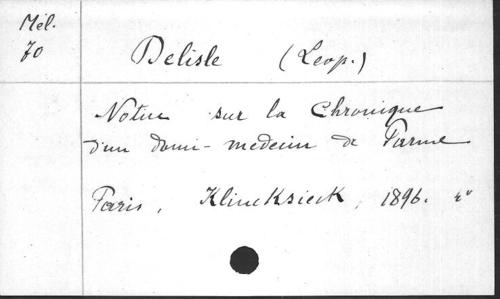 Mél.
70
Delisle (Leop.)
Notice sur la Chronique
d'un domi-medecin de Parme
Paris, Klincksieck, 1896. 4°